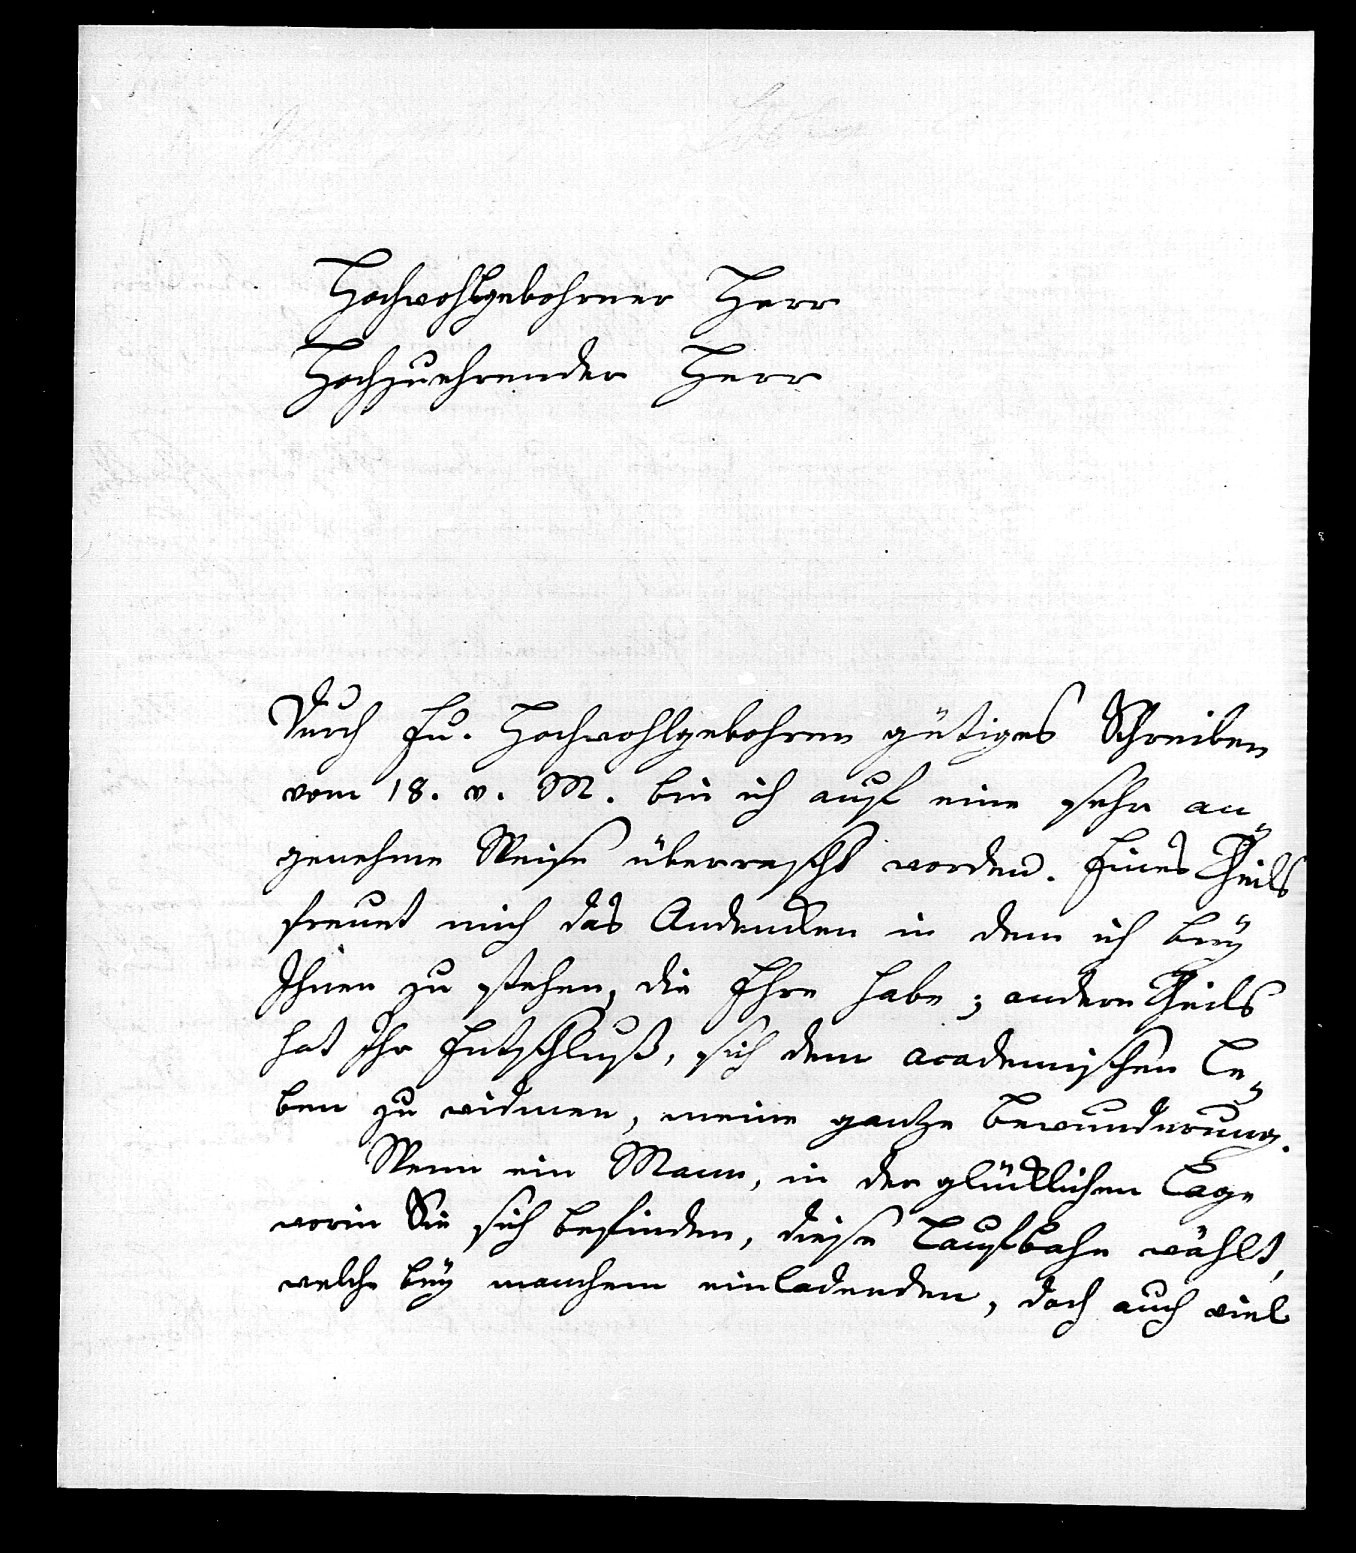 Hochwohlgebohrner Herr
Hochzuehrender Herr
Durch Eu. Hochwohlgebohren gütiges Schreiben
vom 18. v. M. bin ich auf eine sehr an-
genehme Weise überrascht worden. Eines Theils
freuet mich das Andencken in dem ich bey
Ihnen zu stehen, die Ehre habe; andern Theils
hat Ihr Entschluß, sich dem academischen Le-
ben zu widmen, meine ganze Bewunderung.
Wenn ein Mann, in der glücklichen Lage
worin Sie sich befinden, diese Laufbahn wählt,
welche bey manchem einladenden, doch auch viel